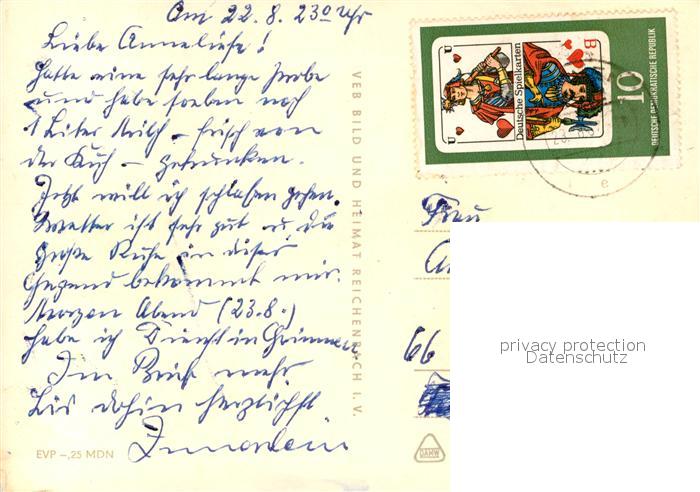 Am 22.8. 23⁰ Uhr
Liebe Anneliese!
Hatte eine sehr lange Probe
und habe soeben noch
1 Liter Milch - frisch von
der Kuh - getrunken.
Jetzt will ich schlafen gehen.
Wetter ist sehr gut u. die
große Ruhe in dieser
Gegend bekommt mir.
Morgen Abend (23.8.)
habe ich Dienst in Grimmen
Im Brief mehr.
Bis dahin herzlichst
EVP -,25 MDN
VEB BILD UND HEIMAT REICHENBACH I. V.
DAMW
U
U
B
Deutsche Spielkarten
10
DEUTSCHE DEMOKRATISCHE REPUBLIK
e
Frau
66
privacy protection
Datenschutz